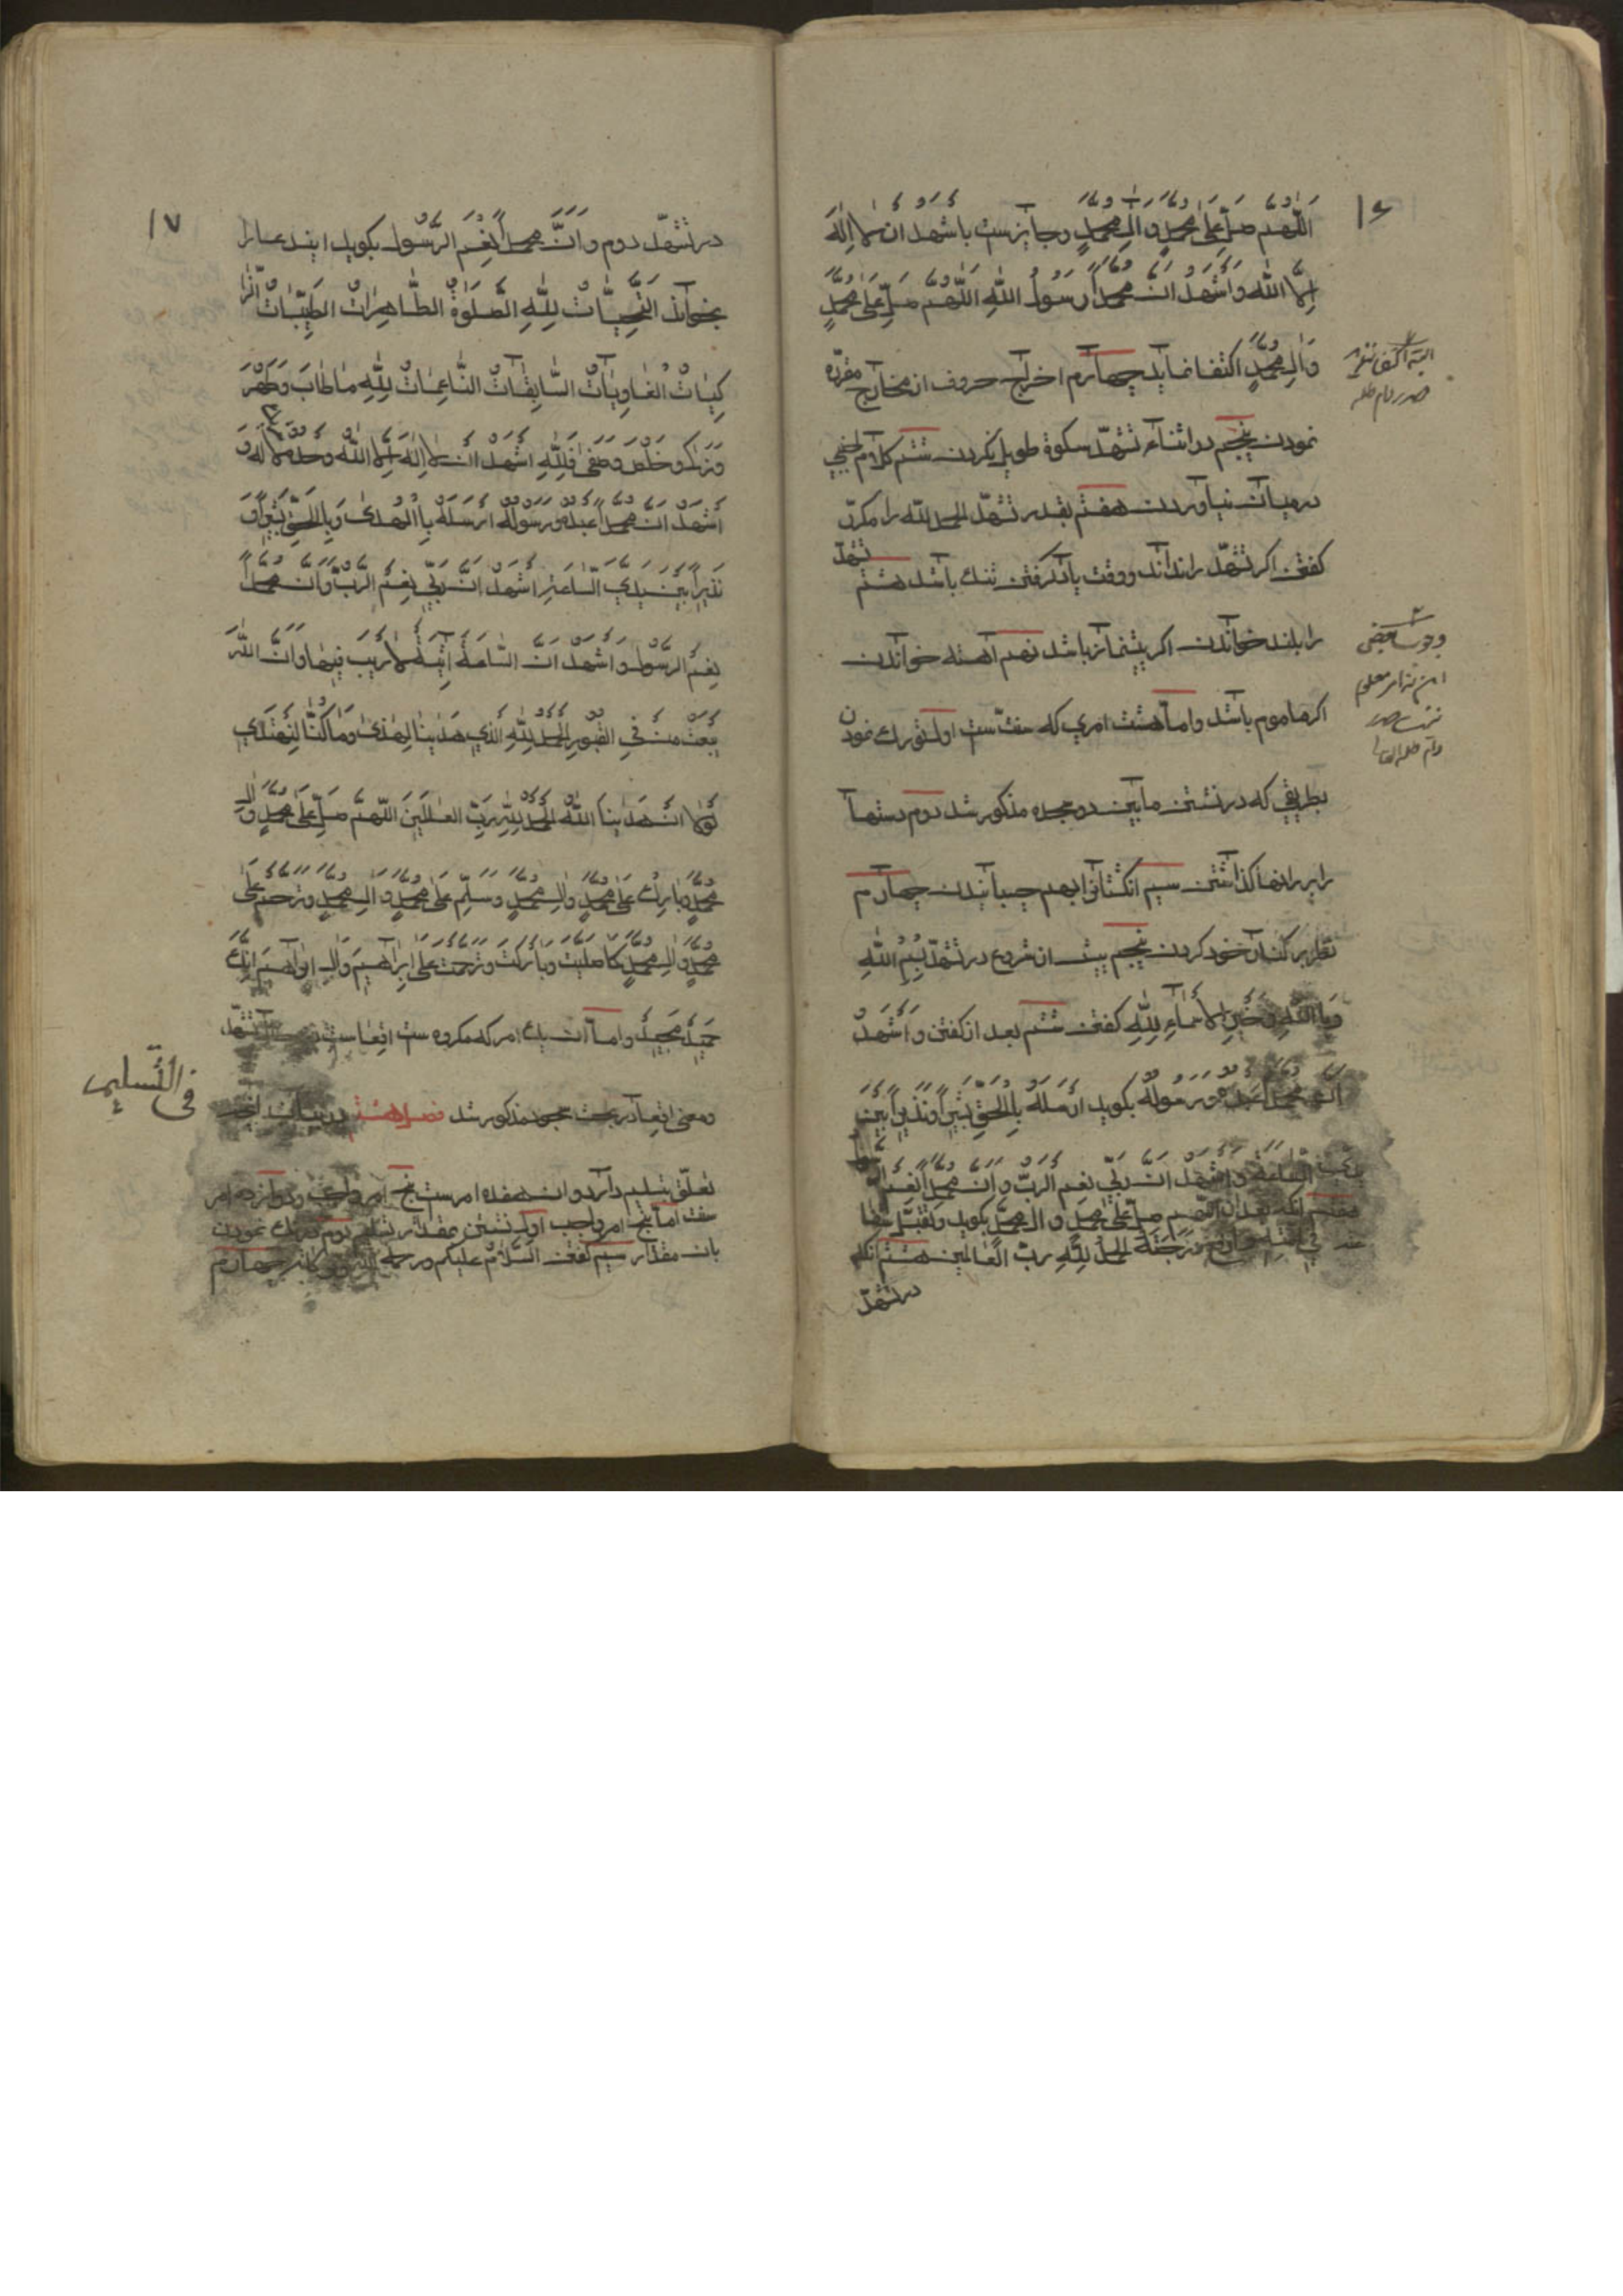 ١٦
اَللّٰهُمَّ صَلِّ عَلٰى مُحَمَّدٍ وَآلِ مُحَمَّدٍ وجايزست با شهد ان لا اِلٰهَ
اِلَّا اللّٰه وَاَشْهَدُ انَّ مُحَمَّداً رَسُولُ اللّٰهِ اَللّٰهُمَّ صَلِّ عَلٰى مُحَمَّدٍ
وَآلِ مُحَمَّدٍ اكتفا نمايد چهارم اخراج حروف از مخارج مقرّره
نمودن پنجم در اثناء تشهّد سكوة طويل نكردن ششم كلام اجنبي
در ميان نياوردن هفتم بقدر تشهّد الحمد للّه را مكرّر
كفتن اكر تشهّد را نداند ووقت ياد كرفتن تنك باشد هشتم تشهّد
را بلند خواندن اكر پيشنماز باشد نهم آهسته خواندن
اكر ماموم باشد واما هشت امري كه سنّت ست اول تورك نمودن
بطريقي كه در نشستن مابين دو سجده مذكور شد دوم دستها
را بر رانها كذاشتن سيم انكشتانرا بهم چسبانيدن چهارم
نظر بر كنار خود كردن پنجم پيش از شروع در تشهّد بِسْمِ اللّٰهِ
وَبِاللّٰهِ وَخَيْرِ الاَسْماءِ لِلّٰهِ كفتن ششم بعد از كفتن وَاَشْهَدُ
اَنَّ مُحَمَّداً عَبْدُهُ وَرَسُولُهُ بكويد اَرْسَلَهُ بِالْحَقِّ بَشيراً وَنَذيراً بَيْنَ
السّاعَة وَاَشْهَدُ انَّ رَبّي نِعْمَ الرَّبّ وَانَّ مُحَمَّداً نِعْمَ
هفتم انكه بعد از اللّٰهم صلّ على محمّد وال محمّد بكويد وتقبّل
في وَارْفَعْ دَرَجَتَهُ الحمدُ لِلّٰهِ ربّ العالمين هشتم انكه
در تشهّد
١٧
در تشهّد دوم وَانَّ مُحَمَّداً نِعْمَ الرَّسُول بكويد
بخواند اَلتَّحِيّاتُ لِلّٰهِ الصَّلَوٰةُ الطّاهِراتُ الطَّيِّباتُ الزّا
كِياتُ الْغادِياتُ السّابِغاتُ النّاعِماتُ لِلّٰهِ ما طابَ وَطَهُرَ
وَزَكٰى وَخَلَصَ وَصَفٰى فَلِلّٰهِ اَشْهَدُ ان لا اِلٰهَ اِلَّا اللّٰه وَحْدَهُ لا لَهُ وَ
اَشْهَدُ انَّ مُحَمَّداً عَبْدُهُ وَرَسُولُهُ اَرْسَلَهُ بِالْهُدٰى وَبِالْحَقِّ بَشيراً وَ
نَذيراً بَيْنَ يَدَيِ السّاعَةِ اَشْهَدُ انَّ رَبّي نِعْمَ الرَّبّ وَانَّ مُحَمَّداً
نِعْمَ الرَّسُول وَاَشْهَدُ انَّ السّاعَةَ آتِيَةٌ لا رَيْبَ فيها وَانَّ اللّٰهَ
يَبْعَثُ مَنْ فِي الْقُبُورِ الْحَمْدُ لِلّٰهِ الَّذي هَدٰينا لِهٰذا وَما كُنّا لِنَهْتَدِيَ
لَوْلا انْ هَدٰينَا اللّٰهُ الْحَمْدُ لِلّٰهِ رَبِّ الْعٰالَمينَ اللّٰهُمَّ صَلِّ عَلٰى مُحَمَّدٍ وَآلِ
مُحَمَّدٍ وَبارِكْ عَلٰى مُحَمَّدٍ وَآلِ مُحَمَّدٍ وَسَلِّمْ عَلٰى مُحَمَّدٍ وَآلِ مُحَمَّدٍ وَتَرَحَّمْ عَلٰى
مُحَمَّدٍ وَآلِ مُحَمَّدٍ كَما صَلَّيْتَ وَبارَكْتَ وَتَرَحَّمْتَ عَلٰى اِبْراهيمَ وَآلِ اِبْراهيمَ اِنَّكَ
حَميدٌ مَجيدٌ واما ان يك امر كه مكروه ست اقعا ست تشهّد
ومعنى اقعا در بحث سجود مذكور شد فصل هشتم در بيان انچه
تعلّق بتسليم دارد وان هفده امر ست پنج امر واجب ودوازده امر
سنّت اما پنج امر واجب اول نشستن بمقدار تسليم دوم نمودن
بان مقدار سيم كفتن السّلام عليكم ورحمة اللّه وبركاته چهارم
في التّسليم